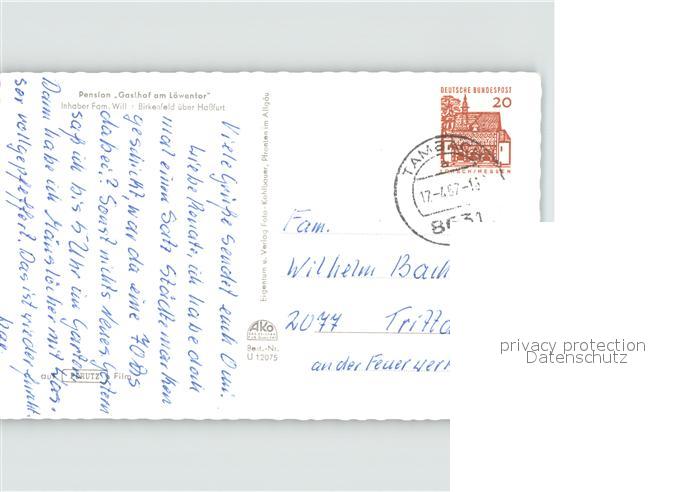 Pension „Gasthof am Löwentor"
Inhaber Fam. Will · Birkenfeld über Haßfurt
Viele Grüße sendet euch Omi.
Liebe Renate, ich habe doch
mal einen Satz Städtemarken
geschickt, war da eine 70 Pfg
dabei? Sonst nichts neues, gestern
saß ich bis 5 Uhr im Garten
Dann habe ich Mäuslöcher mit
ser vollgepfeffert. Das ist wieder
aus PERUTZ Film
Eigentum u. Verlag Foto-Kohlbauer, Pfronten im Allgäu
AKO
Best.-Nr.
U 12075
DEUTSCHE BUNDESPOST
20
LORSCH/HESSEN
TAMBACH
17.-4.67-1
8631
Fam.
Wilhelm Bach
2077 Tritta
an der Feuerwer
privacy protection
Datenschutz